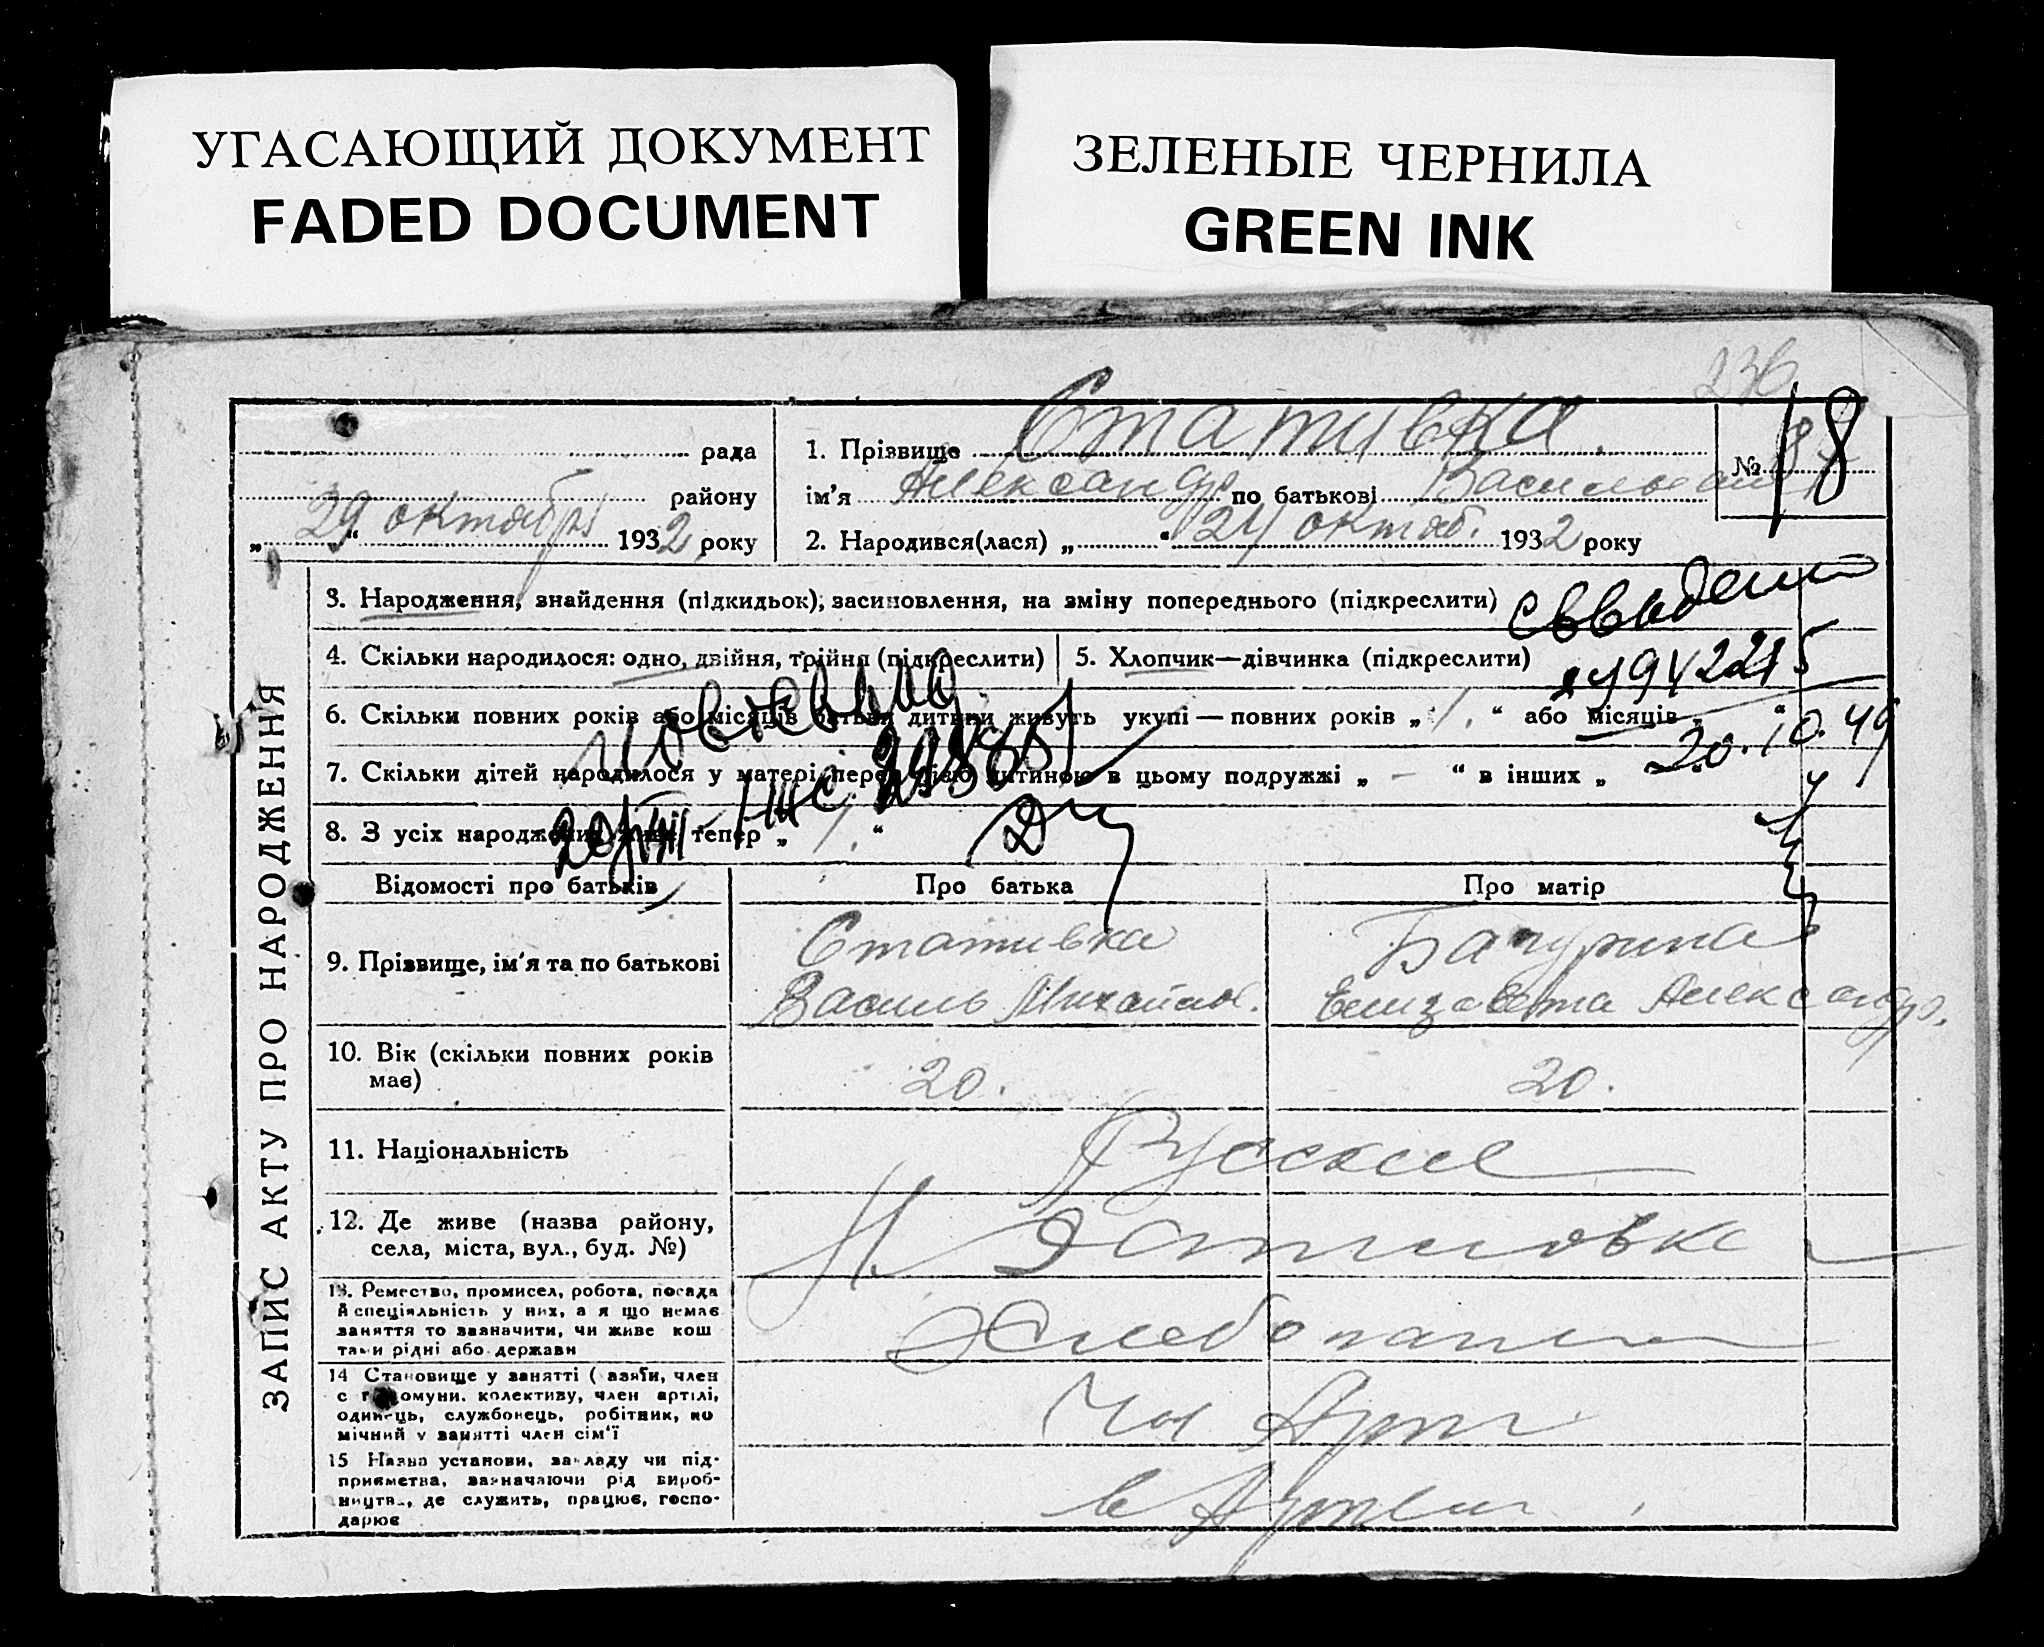 УГАСАЮЩИЙ ДОКУМЕНТ
FADED DOCUMENT
ЗЕЛЕНЫЕ ЧЕРНИЛА
GREEN INK
236
рада
району
„ 29 “ октября 1932 року
1. Прізвище Стативка
ім'я Александр по батькові
№ 18
2. Народився(лася) „ “ 24 октяб. 1932 року
ЗАПИС АКТУ ПРО НАРОДЖЕННЯ
3. Народження, знайдення (підкидьок), засиновлення, на зміну попереднього (підкреслити)
4. Скільки народилося: одно, двійня, трійня (підкреслити)
5. Хлопчик—дівчинка (підкреслити)
6. Скільки повних років або місяців батьки дитини живуть укупі — повних років „ 1. “ або місяців „ “
20.10.49
7. Скільки дітей народилося у матері перед цією дитиною в цьому подружжі „ — “ в інших „
8. З усіх народжених живе тепер „ 1. “
Відомості про батьків
Про батька
Про матір
9. Прізвище, ім'я та по батькові
Стативка
Василь Михайлов.
Елизавета Александр.
10. Вік (скільки повних років
має)
20.
20.
11. Національність
Русские
12. Де живе (назва району,
села, міста, вул., буд. №)
13. Ремество, промисел, робота, посада
й спеціяльність у них, а я що немає
заняття то зазначити, чи живе кош
тами рідні або держави
Хлебопаш
14 Становище у занятті (
член
комуни. колективу, член артілі,
одинець, службовець, робітник,
мічний у занятті член сім'ї
Чл Арт.
15 Назва установи, закладу чи під-
приємства, зазначаючи рід вироб-
ництва, де служить, працює, госпо-
дарює
в Артели